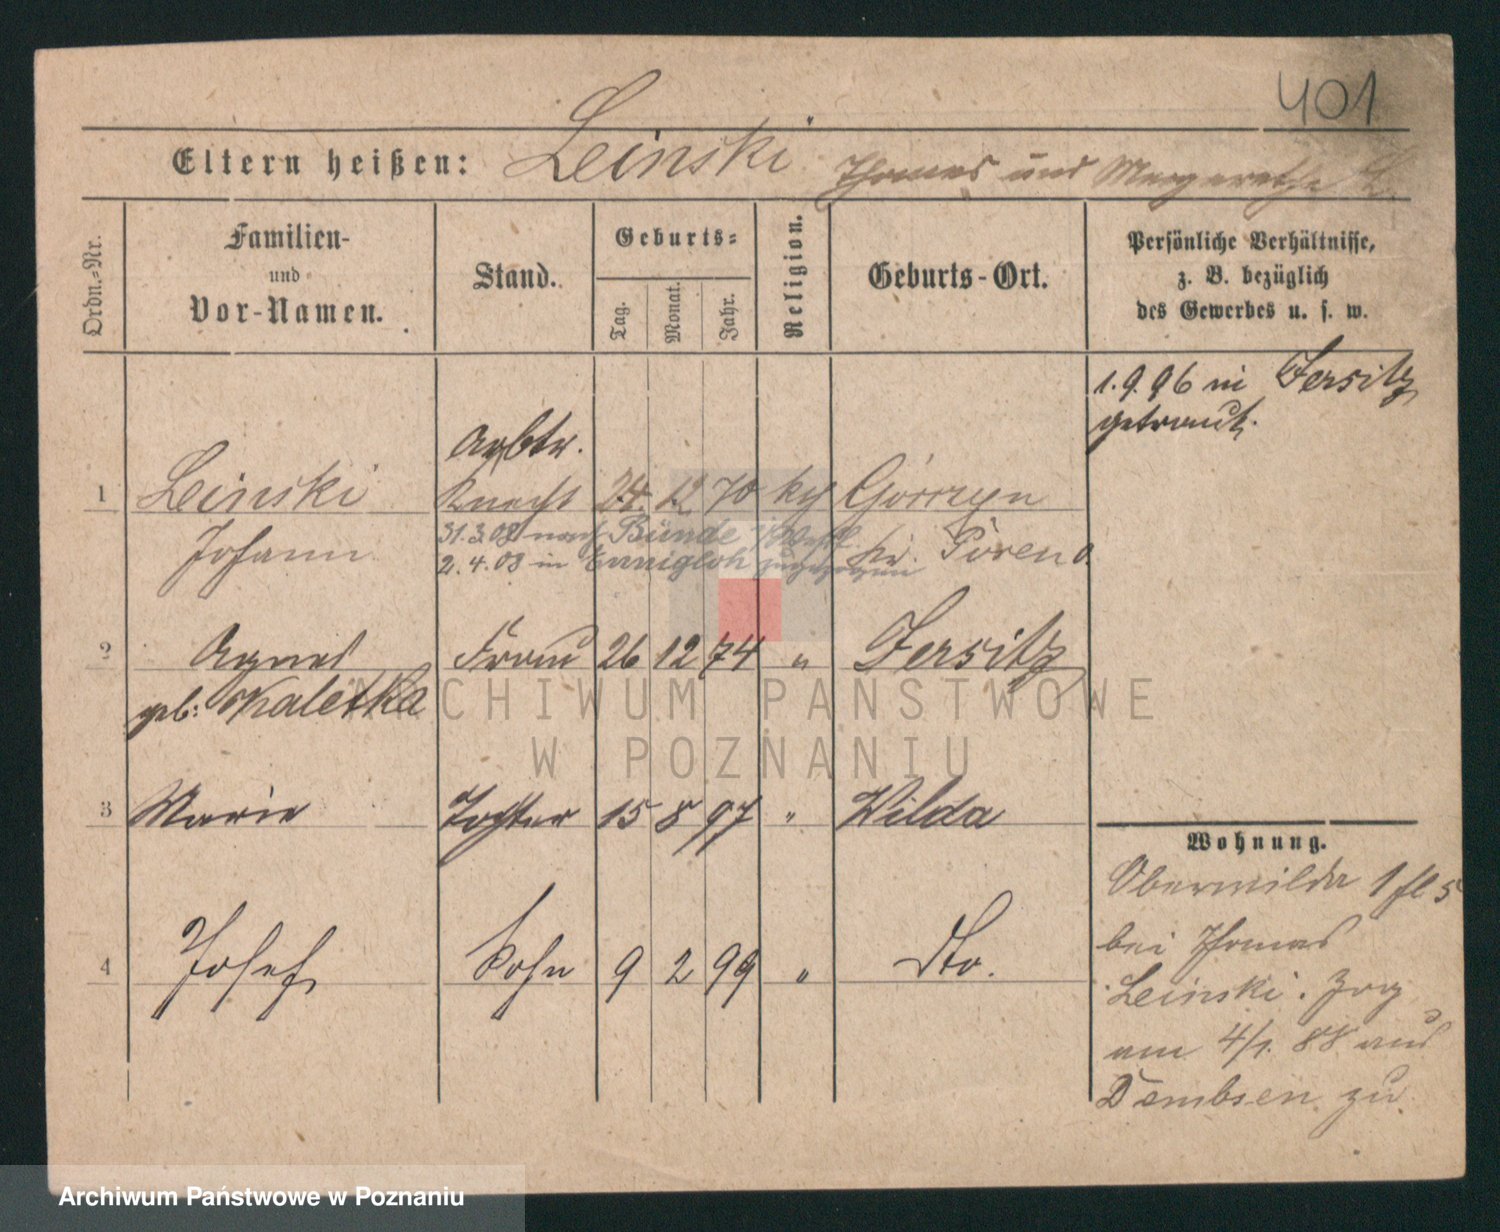 401
Eltern heißen: Leinski Thomas und Margarethe L.
Ordn.-Nr.
Familien-
und
Vor-Namen.
Stand.
Geburts-
Tag.
Monat.
Jahr.
Religion.
Geburts-Ort.
Persönliche Verhältnisse,
z. B. bezüglich
des Gewerbes u. s. w.
1.9.96 in Jersitz
getraut.
Arbtr.
1 Leinski Knecht 24. 12 70 kth Górczyn
Johann
31.3.08 nach Bünde i/Westf.
2.4.08 in Ennigloh zugezogen
Kr. Posen O.
2 Agnes Frau 26 12 74 " Jersitz
geb: Kaletka
3 Marie Tochter 15 8 97 " Wilda
4 Josef Sohn 9 2 99 " Dto.
Wohnung.
Oberwilda 1 fl 5
bei Thomas
Leinski. Zog
am 4/1. 88 aus
Dembsen zu
ARCHIWUM PAŃSTWOWE
W POZNANIU
Archiwum Państwowe w Poznaniu